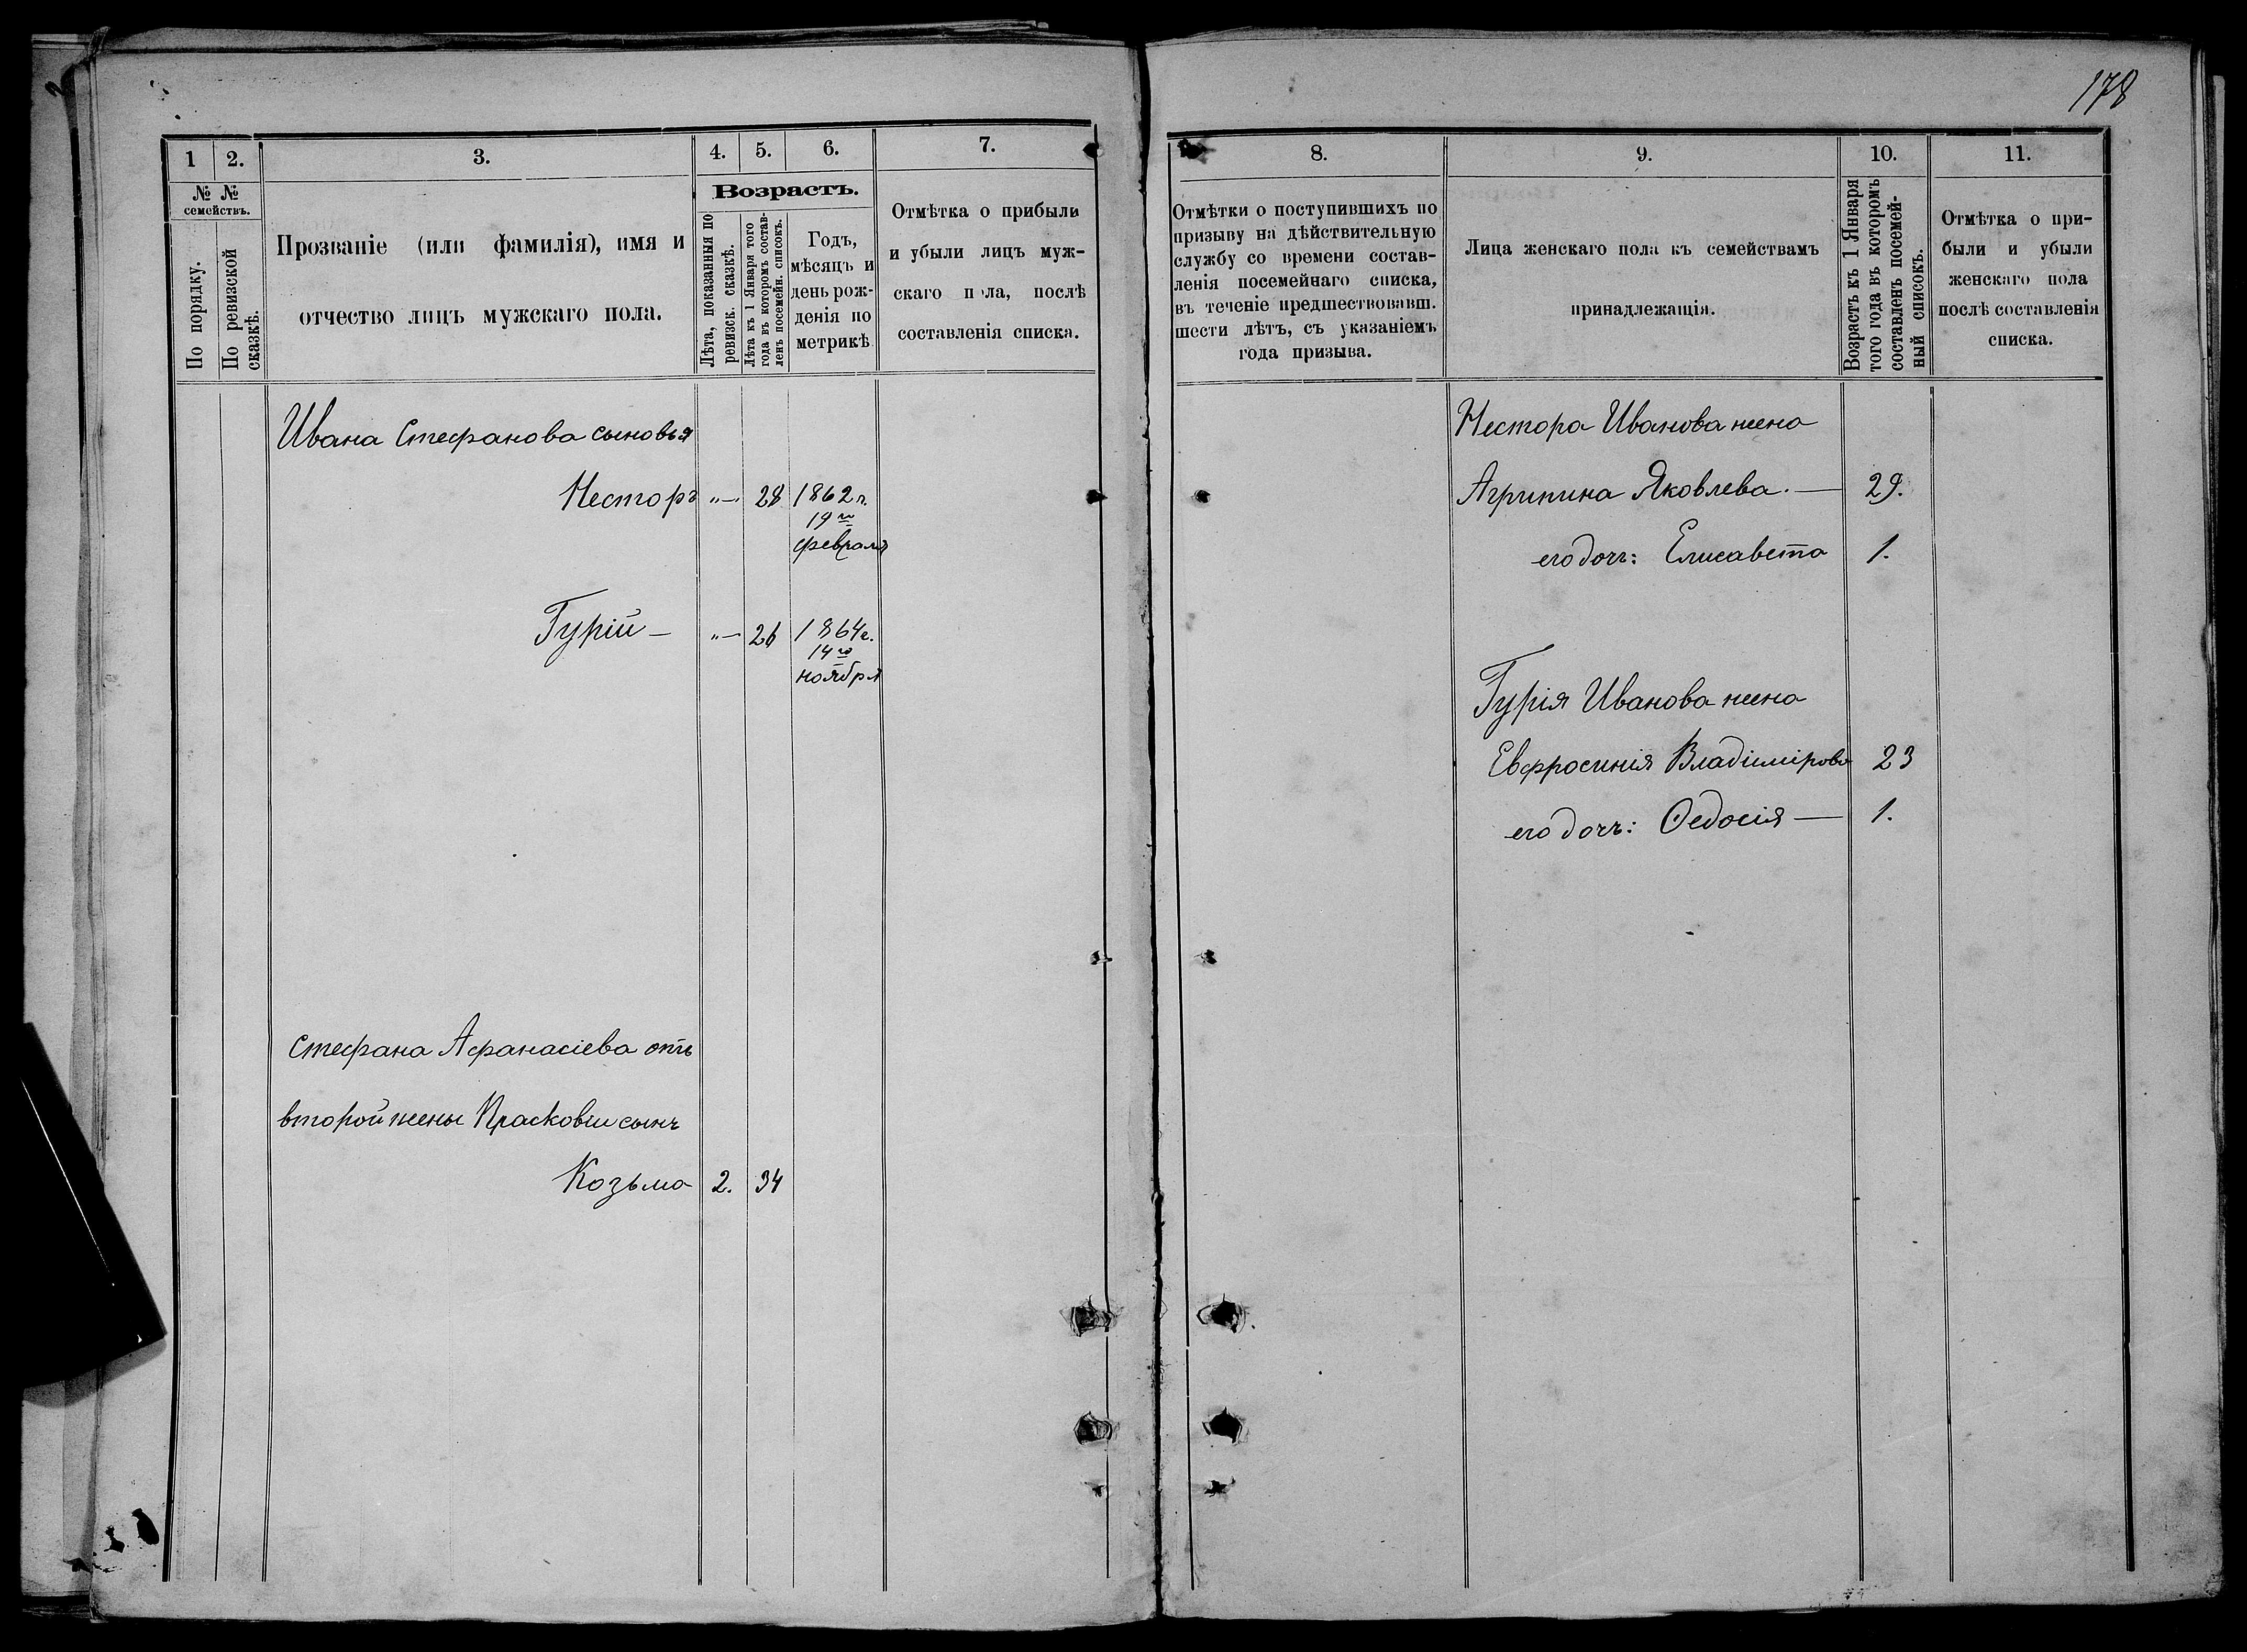 178
1
2.
3.
4.
5.
6.
7.
№ №
семействъ.
По порядку.
По ревизской
сказкѣ.
Прозваніе (или фамилія), имя и
отчество лицъ мужскаго пола.
Возрастъ.
Лѣта, показанныя по
ревизск. сказкѣ.
Лѣта къ 1 Января того
года въ которомъ состав-
ленъ посемейн. списокъ.
Годъ,
мѣсяцъ и
день рож-
денія по
метрикѣ
Отмѣтка о прибыли
и убыли лицъ муж-
скаго пола, послѣ
составленія списка.
Ивана Стефанова сыновья
Несторъ „— 28 1862 г.
19го
февраля
Гурій — „— 26 1864 г.
14го
ноября
Стефана Афанасіева отъ
второй жены Прасковіи сынъ
Козьма 2. 34
8.
9.
10.
11.
Отмѣтки о поступившихъ по
призыву на дѣйствительную
службу со времени состав-
ленія посемейнаго списка,
въ теченіе предшествовавш.
шести лѣтъ, съ указаніемъ
года призыва.
Лица женскаго пола къ семействамъ
принадлежащія.
Возрастъ къ 1 Января
того года въ которомъ
составленъ посемей-
ный списокъ.
Отмѣтка о при-
были и убыли
женскаго пола
послѣ составленія
списка.
Нестора Иванова жена
Агрипина Яковлева. — 29.
его дочь: Елисавета 1.
Гурія Иванова жена
Евфросинія Владимірова 23
его дочь: Ѳедосія — 1.